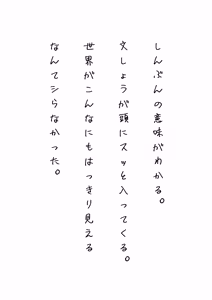 しんぶんの意味がわかる。
文しょうが頭にスッと入ってくる。
世界がこんなにもはっきり見える
なんてシらなかった。